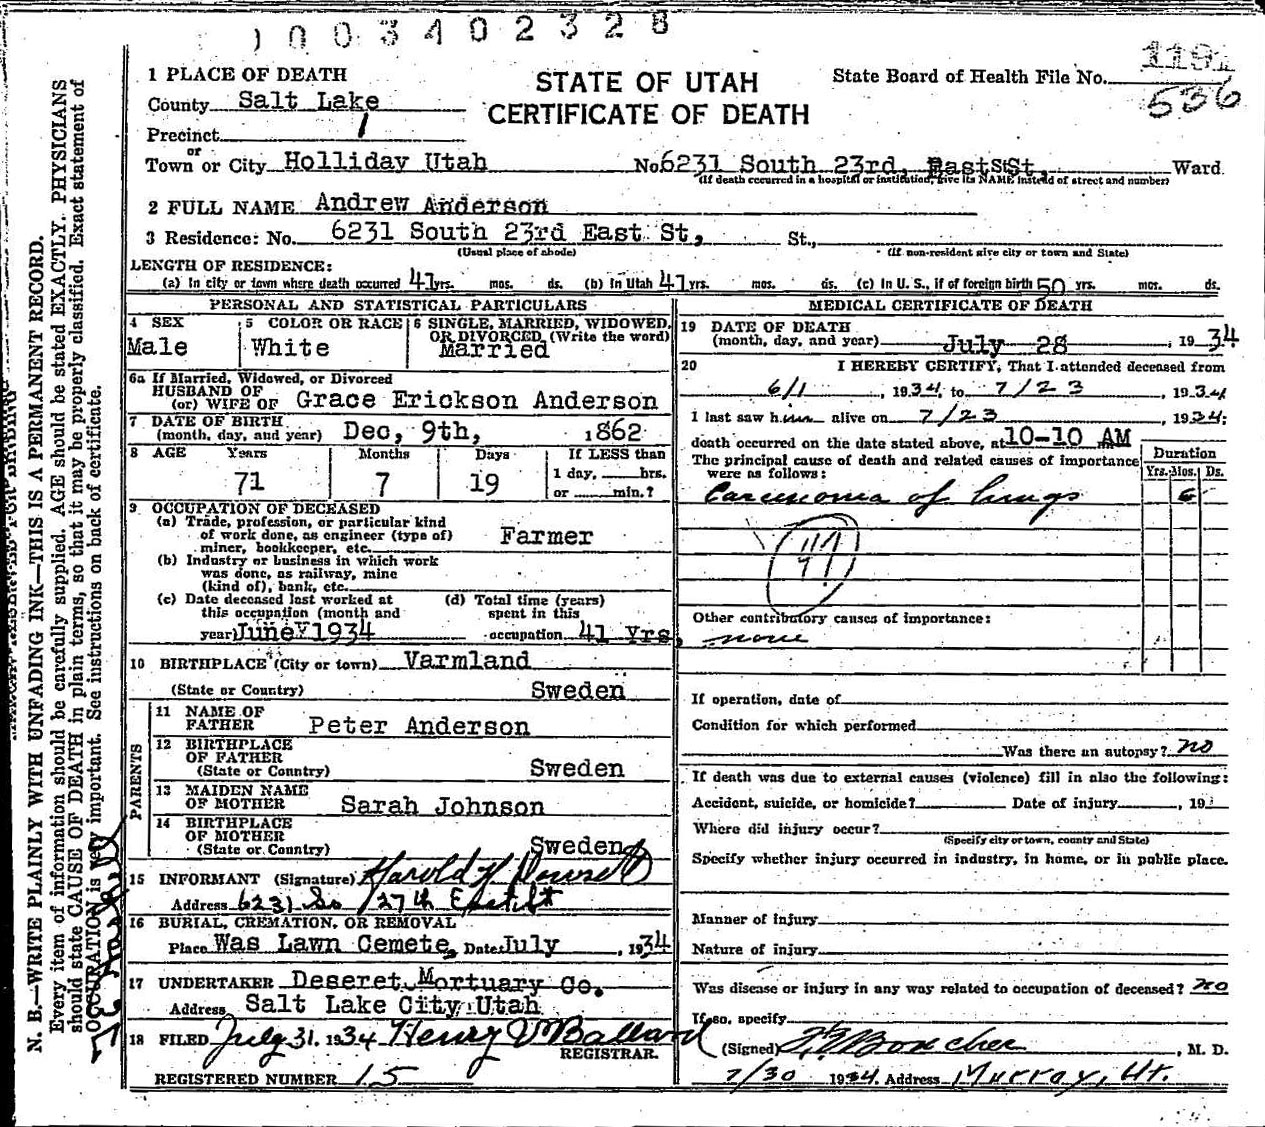 1003402328
1 PLACE OF DEATH
STATE OF UTAH
CERTIFICATE OF DEATH
State Board of Health File No.
536
County Salt Lake
Precinct 1
or
Town or City Holliday Utah No. 6231 South 23rd, East St, Ward
(If death occurred in a hospital or institution, give its NAME instead of street and number)
2 FULL NAME Andrew Anderson
3 Residence: No. 6231 South 23rd East St, St.,
(Usual place of abode) (If non-resident give city or town and State)
LENGTH OF RESIDENCE:
(a) In city or town where death occurred 41 yrs. mos. ds. (b) In Utah 41 yrs. mos. ds. (c) In U. S., if of foreign birth 50 yrs. mos. ds.
PERSONAL AND STATISTICAL PARTICULARS
4 SEX
Male
5 COLOR OR RACE
White
6 SINGLE, MARRIED, WIDOWED,
OR DIVORCED, (Write the word)
Married
6a If Married, Widowed, or Divorced
HUSBAND OF
(or) WIFE OF Grace Erickson Anderson
7 DATE OF BIRTH
(month, day, and year) Dec, 9th, 1862
8 AGE Years Months Days If LESS than
1 day, hrs.
71 7 19 or min.?
9 OCCUPATION OF DECEASED
(a) Trade, profession, or particular kind
of work done, as engineer (type of)
miner, bookkeeper, etc. Farmer
(b) Industry or business in which work
was done, as railway, mine
(kind of), bank, etc.
(c) Date deceased last worked at
this occupation (month and
year) June 1934
(d) Total time (years)
spent in this
occupation 41 Yrs,
10 BIRTHPLACE (City or town) Varmland
(State or Country) Sweden
PARENTS
11 NAME OF
FATHER Peter Anderson
12 BIRTHPLACE
OF FATHER
(State or Country) Sweden
13 MAIDEN NAME
OF MOTHER Sarah Johnson
14 BIRTHPLACE
OF MOTHER
(State or Country) Sweden
15 INFORMANT (Signature) Harold H
Address 6231 So 27th East St
16 BURIAL, CREMATION, OR REMOVAL
Place Was Lawn Cemete, Date July, 1934
17 UNDERTAKER Deseret Mortuary Co.
Address Salt Lake City Utah
18 FILED July 31. 1934 Henry V Ballard
REGISTRAR.
REGISTERED NUMBER 15
MEDICAL CERTIFICATE OF DEATH
19 DATE OF DEATH
(month, day, and year) July 28, 1934
20 I HEREBY CERTIFY, That I attended deceased from
6/1, 1934, to 7/23, 1934
I last saw him alive on 7/23, 1934;
death occurred on the date stated above, at 10-10 AM
The principal cause of death and related causes of importance
were as follows:
Duration
Yrs. Mos. Ds.
Carcinoma of lungs 6
Other contributory causes of importance:
none
If operation, date of
Condition for which performed
Was there an autopsy? no
If death was due to external causes (violence) fill in also the following:
Accident, suicide, or homicide? Date of injury, 19
Where did injury occur?
(Specify city or town, county and State)
Specify whether injury occurred in industry, in home, or in public place.
Manner of injury
Nature of injury
Was disease or injury in any way related to occupation of deceased? no
If so, specify
(Signed) Boucher, M. D.
7/30 1934. Address Murray, Ut.
N. B.—WRITE PLAINLY WITH UNFADING INK—THIS IS A PERMANENT RECORD.
Every item of information should be carefully supplied. AGE should be stated EXACTLY. PHYSICIANS
should state CAUSE OF DEATH in plain terms, so that it may be properly classified. Exact statement of
OCCUPATION is very important. See instructions on back of certificate.